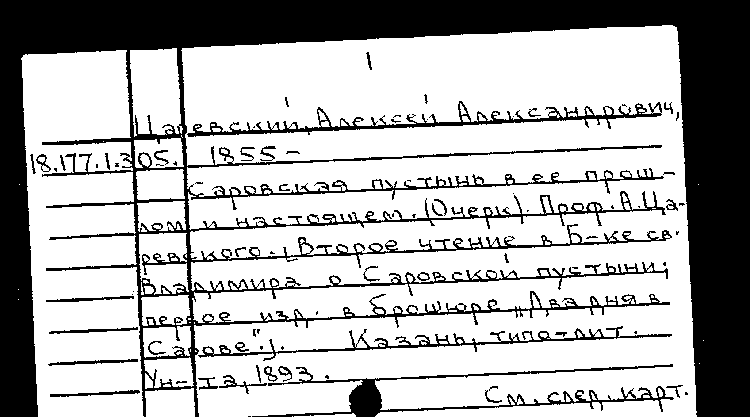 1
Царевский, Алексей Александрович,
18.177.1.305. 1855 –
Саровская пустынь в ее прош-
лом и настоящем. (Очерк). Проф. А. Ца-
ревского. [Второе чтение в Б-ке св.
Владимира о Саровской пустыни;
первое изд. в брошюре „Два дня в
Сарове".]. Казань, типо-лит.
Ун-та, 1893.
См. след. карт.